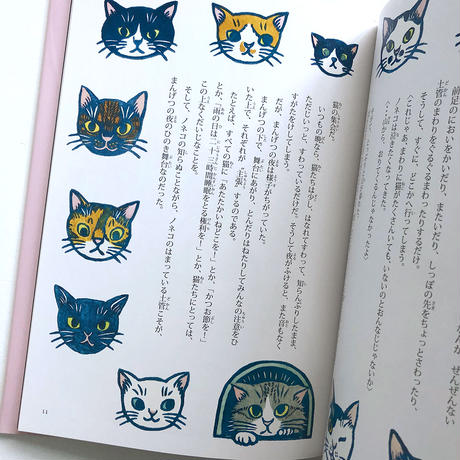 前足のにおいをかいだり、またいだり、しっぽの先をちょっとさわったり、
土管のまわりをぐるぐるまわったりするだけ。
そうしてすぐ、どこかへ行ってしまう。
〈これじゃ、まわりに猫がたくさんいても、いないのとおんなじじゃないか〉
ノネコは
猫の集会だ。
いつもの晩なら、猫たちは少しはなれてすわって、知らんぷりしたまま、
ただじいっと、すわっているだけだ。そうして夜がふけると、また音もなく
すがたをけしてしまう。
だが、まんげつの夜は様子がちがっていた。
まんげつの下で、舞台にあがり、とんだりはねたりしてみんなの注意をひ
いた上で、それぞれが「主張」するのである。
たとえば、「すべての猫に、あたたかいねどこを！」とか、「かつお節を！」
とか、「雨の日は二十三時間睡眠をとる権利を！」とか、猫たちにとっては、
この上なくだいじなことを。
そして、ノネコの知らぬことながら、ノネコのはまっている土管こそが、
まんげつの夜のひのき舞台なのだった。
11